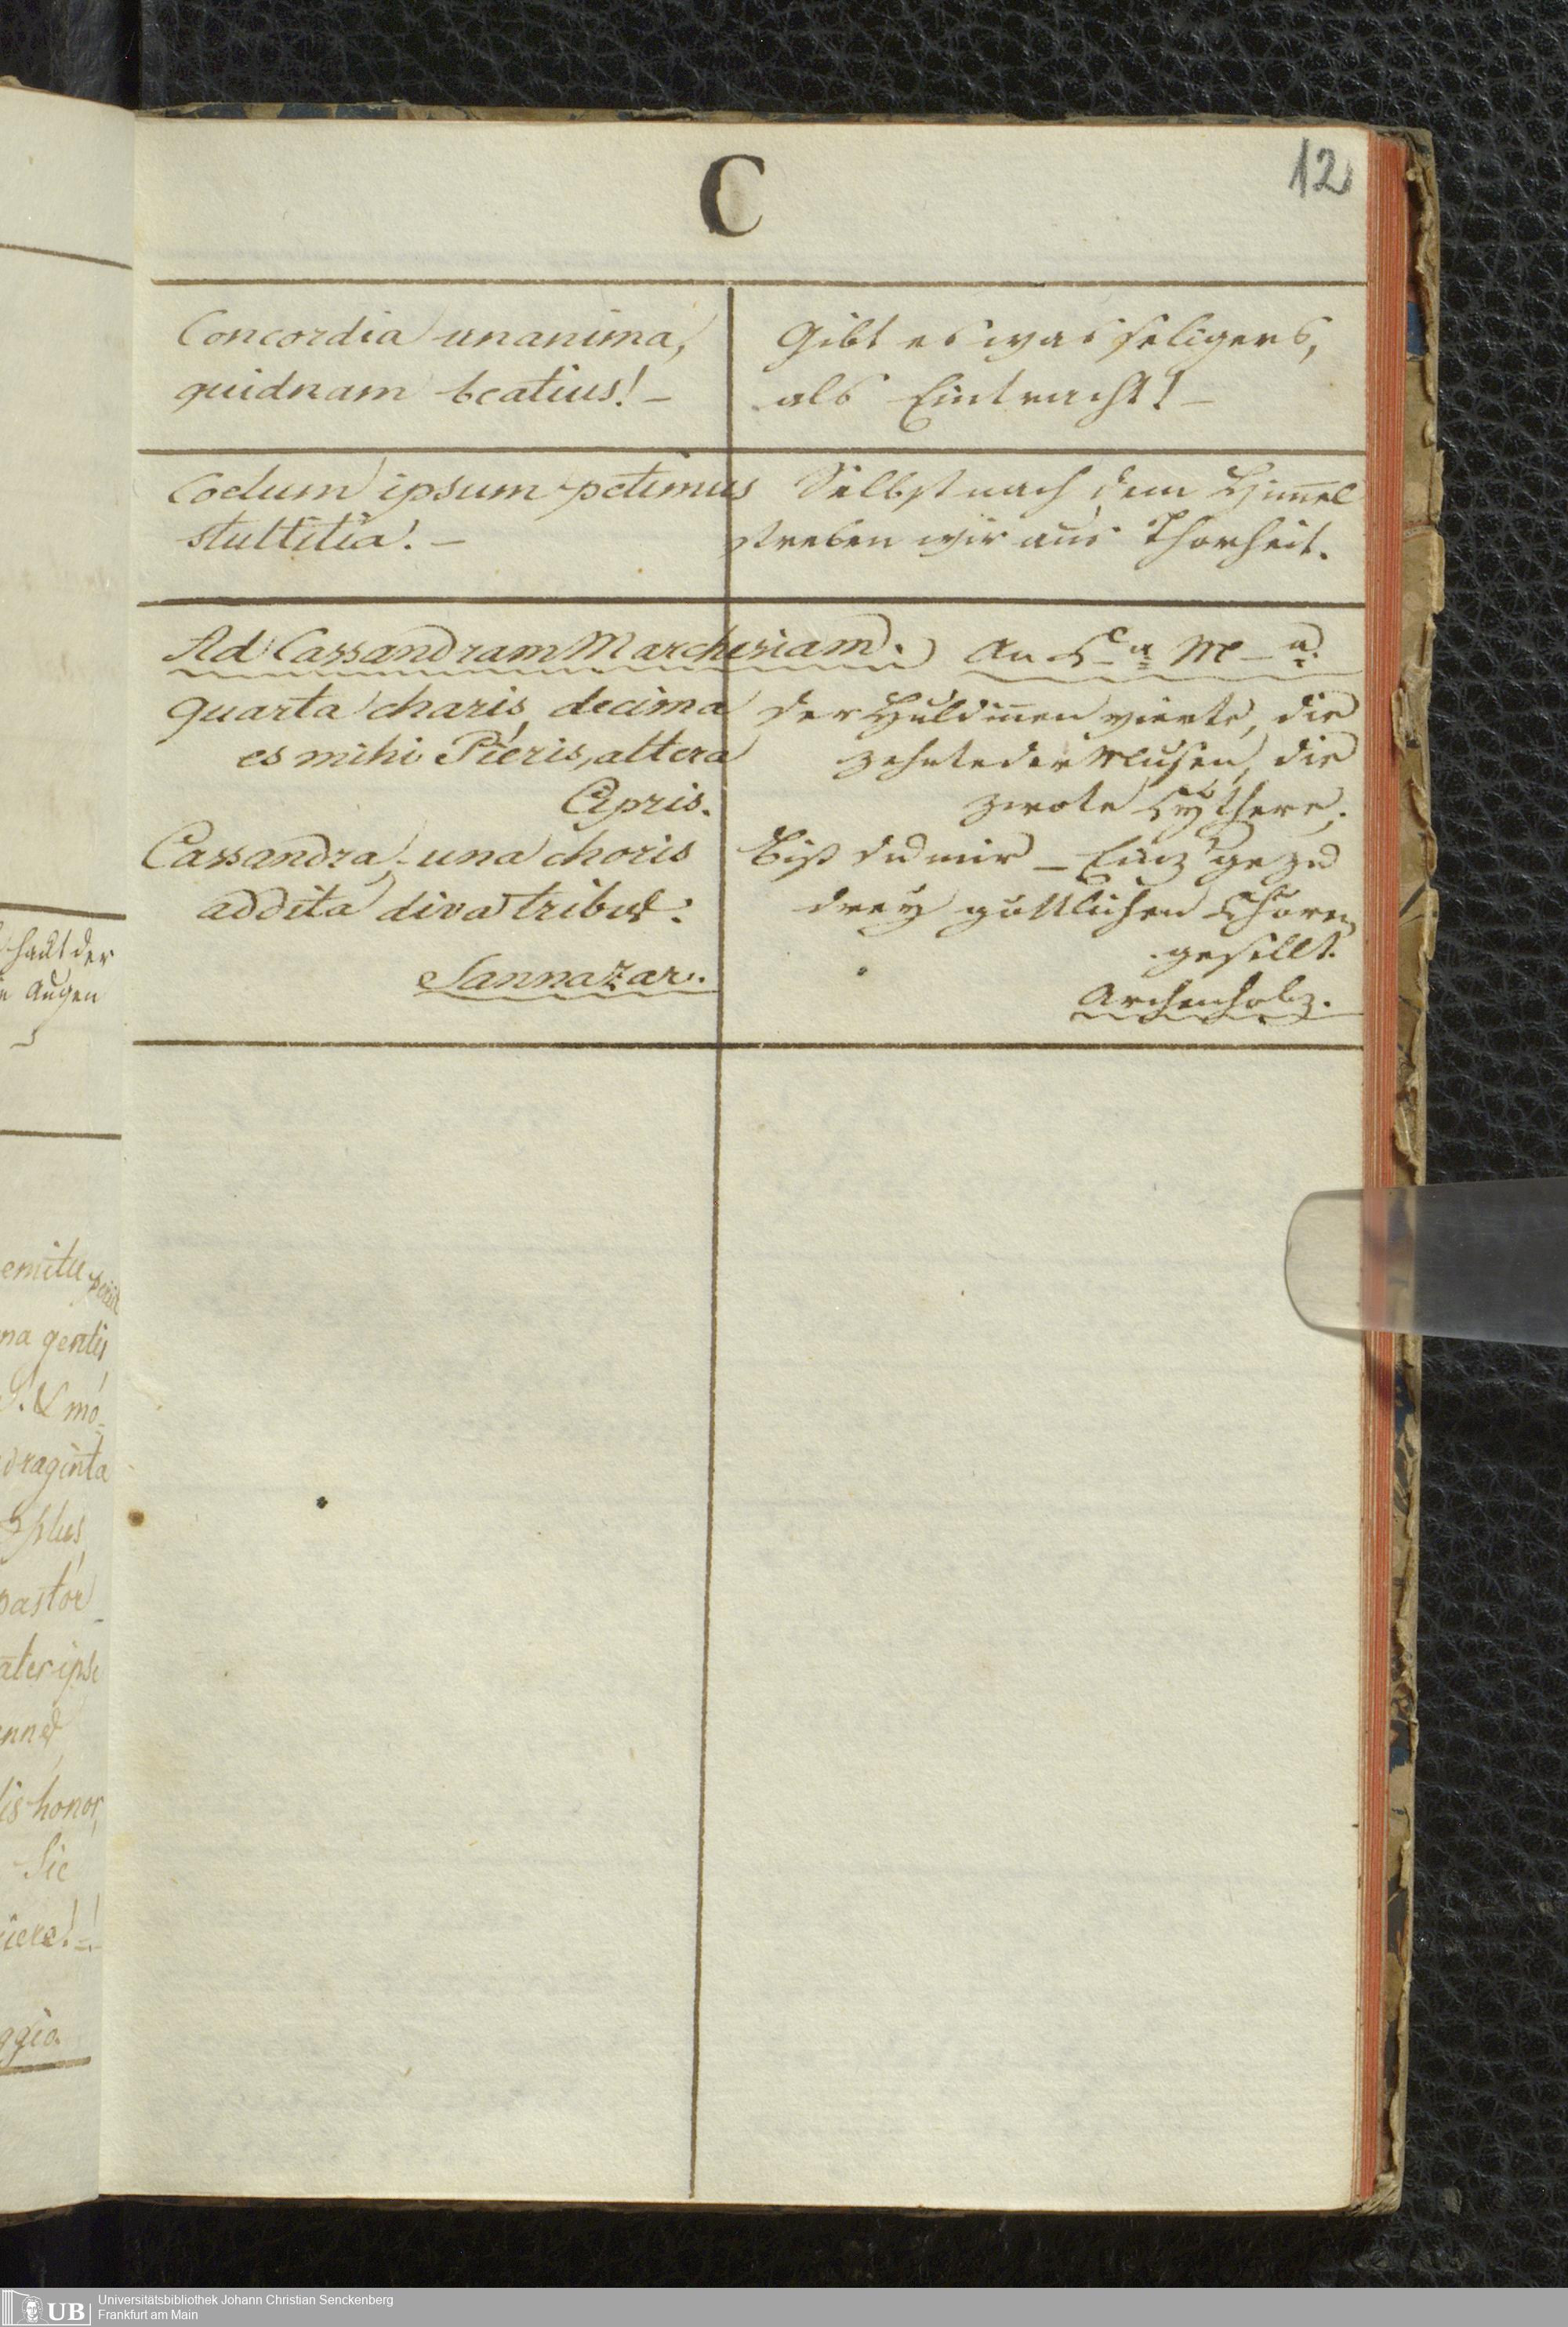 12
C
Concordia unanima,
quidnam beatius! –
Gibt es was seligers,
als Eintracht! –
Coelum ipsum petimus
stultitia. –
Selbst nach dem Him̅el
streben wir aus Thorheit.
Ad Cassandram Marchesiam.
quarta charis, decima
es mihi Pieris, altera
Cypris.
Cassandra, una choris
addita diva tribus.
Sannazar.
An C–a M–a.
der Huldinnen vierte, die
zehnte der Musen, die
zwote Cythere,
Bist du mir – Einzge zu
drey göttlichen Chören
gesellt.
Archenholz.
halt der
Augen
emitu
na gentis
draginta
plus
pastor
ater ipse
is honor,
Sic
ggio.
UB
Universitätsbibliothek Johann Christian Senckenberg
Frankfurt am Main